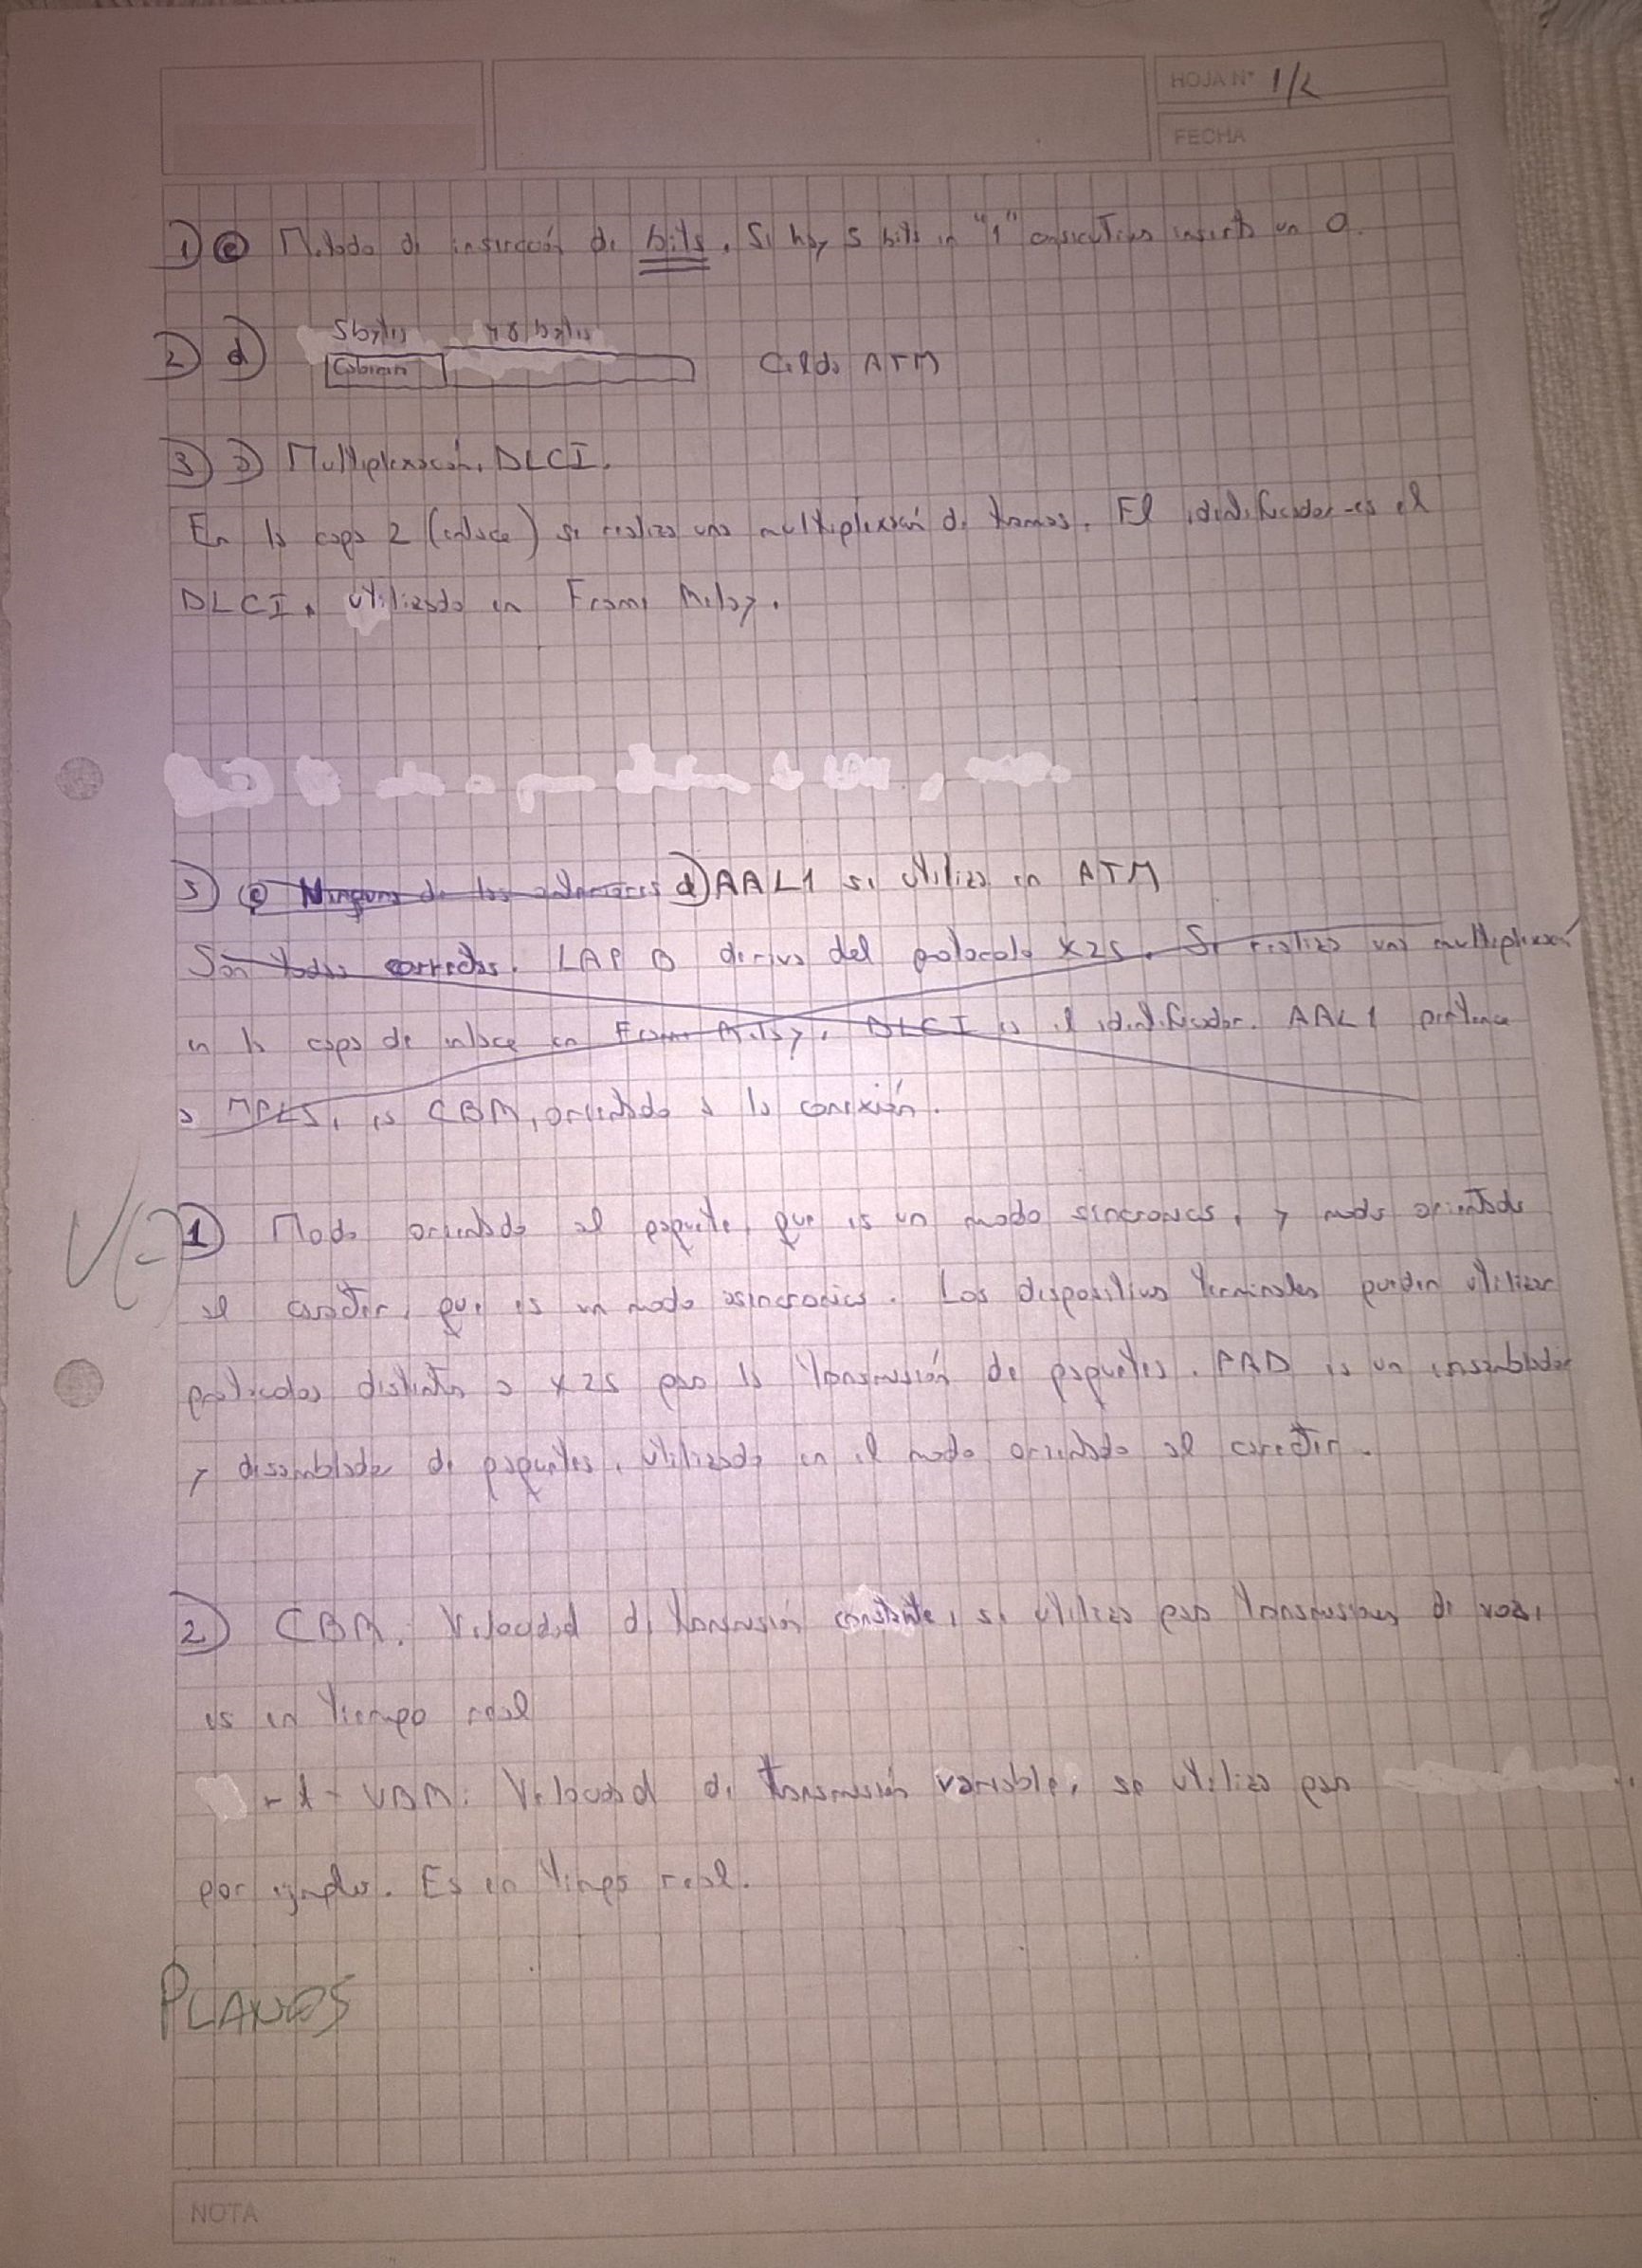 HOJA N° 1/2
FECHA
1) e Metodo de inserción de bits. Si hay 5 bits en "1" consecutivos inserta un 0.
5bytes 48 bytes
2) d) Cabecera Celda ATM
3) a) Multiplexación, DLCI.
En la capa 2 (enlace) se realiza una multiplexación de tramas. El identificador es el
DLCI, utilizado en Frame Relay.
5) e Ninguna de las anteriores d) AAL1 se utiliza en ATM
Son todas correctas. LAP B deriva del protocolo X25. Se realiza una multiplexación
en la capa de enlace en Frame Relay. DLCI es el identificador. AAL1 pertenece
a MPLS, es CBR, orientado a la conexión.
1) Modo orientado al paquete, que es un modo sincronico, y modo orientado
al caracter, que es un modo asincronico. Los dispositivos terminales pueden utilizar
protocolos distintos a X25 para la transmisión de paquetes. PAD es un ensamblador
y desamblador de paquetes, utilizado en el modo orientado al caracter.
2) CBR. Velocidad de transmisión constante, se utiliza para transmisiones de voz,
es en tiempo real
r-t-VBR: Velocidad de transmisión variable, se utiliza para
por ejemplo. Es en tiempo real.
PLANOS
NOTA